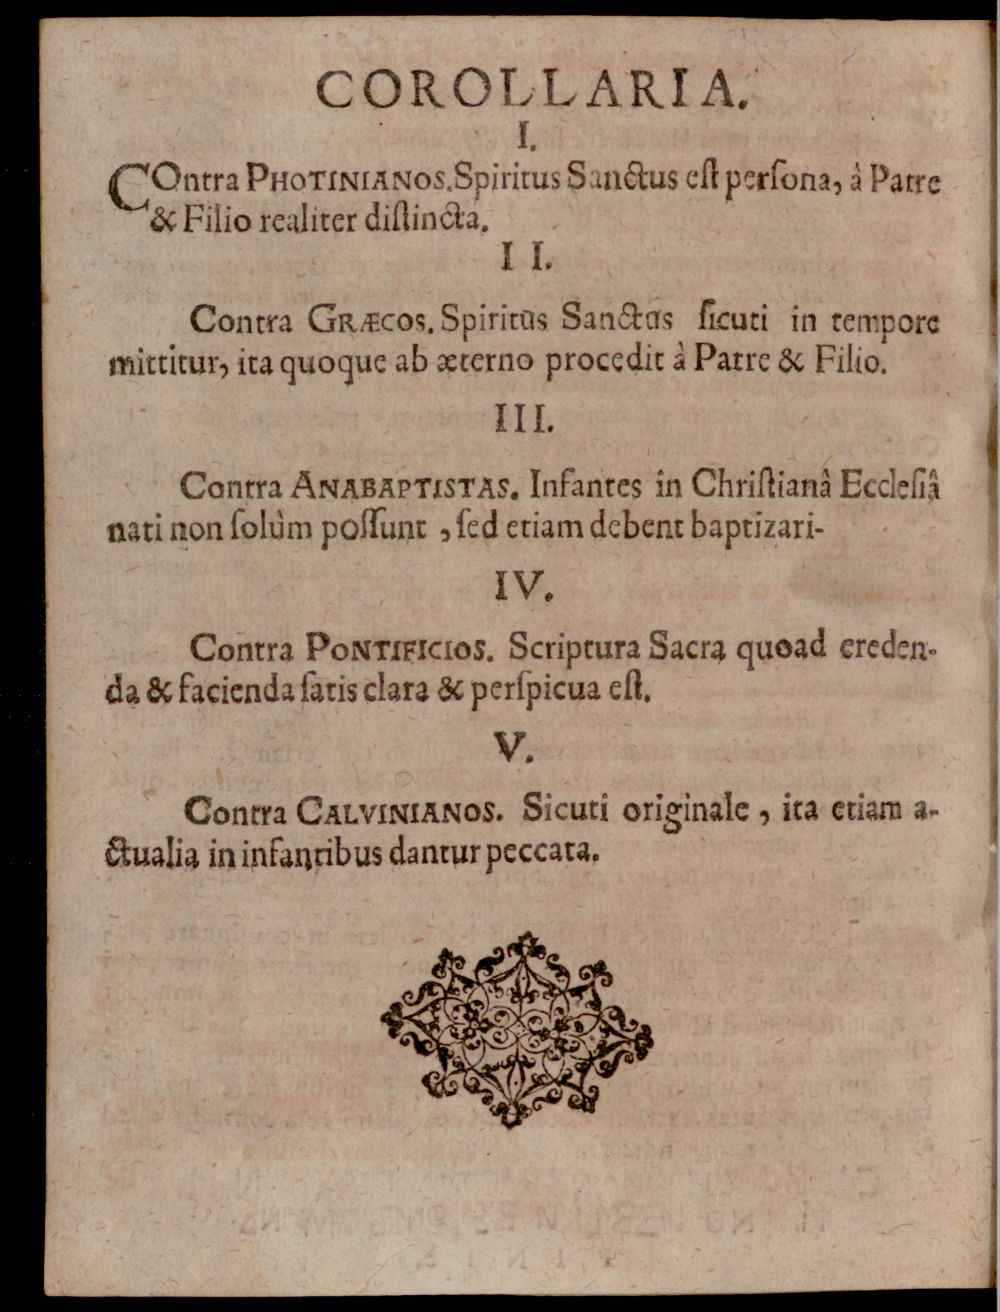 COROLLARIA.
I.
COntra PHOTINIANOS. Spiritus Sanctus eſt perſona, à Patre
& Filio realiter diſtincta.
II.
Contra GRÆCOS. Spiritus Sanctus ſicuti in tempore
mittitur, ita quoque ab æterno procedit à Patre & Filio.
III.
Contra ANABAPTISTAS. Infantes in Chriſtianâ Eccleſiâ
nati non ſolùm poſſunt, ſed etiam debent baptizari-
IV.
Contra PONTIFICIOS. Scriptura Sacra quoad creden-
da & facienda ſatis clara & perſpicua eſt.
V.
Contra CALVINIANOS. Sicuti originale, ita etiam a-
ctualia in infantibus dantur peccata.